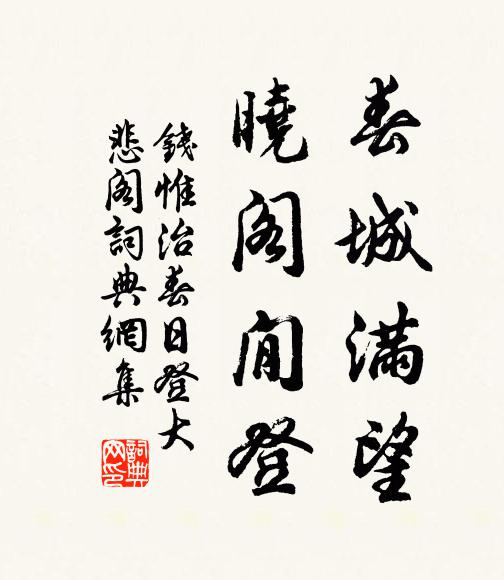 春城滿望
曉閣閒登
錢惟治春日登大
悲閣詞典網集
詞典
网印